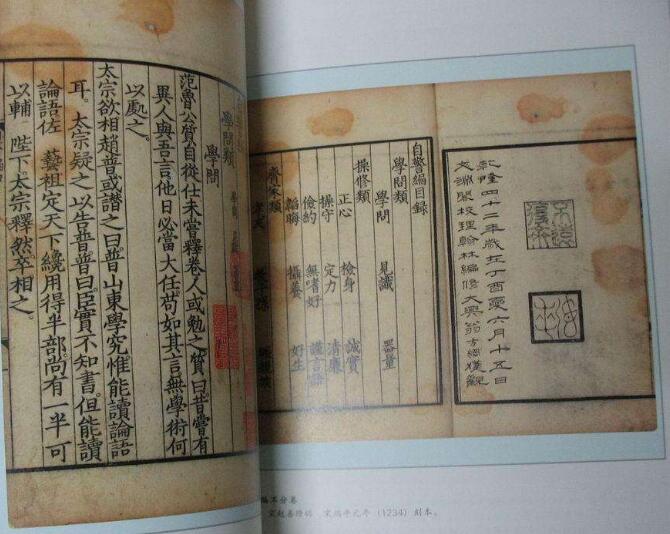 學問類
學問
范魯公質自從仕未嘗釋卷人或勉之質曰昔嘗有
異人與吾言他日必當大任苟如其言無學術何
以處之。
太宗欲相趙普或譖之曰普山東學究惟能讀論語
耳。太宗疑之以告普普曰臣實不知書。但能讀
論語佐 藝祖定天下纔用得半部尚有一半可
以輔 陛下太宗釋然卒相之。
乾隆四十二年歲在丁酉夏六月十五日
文淵閣校理翰林編修大興翁方綱獲觀
自警編目錄
學問類
學問 見識 器量
操修類
正心 檢身 誠實
操守 定力 清廉
儉約 無嗜好 謹言語
韜晦 攝養 好生
齊家類
孝友
編不分卷
宋端平元年（1234）刻本。